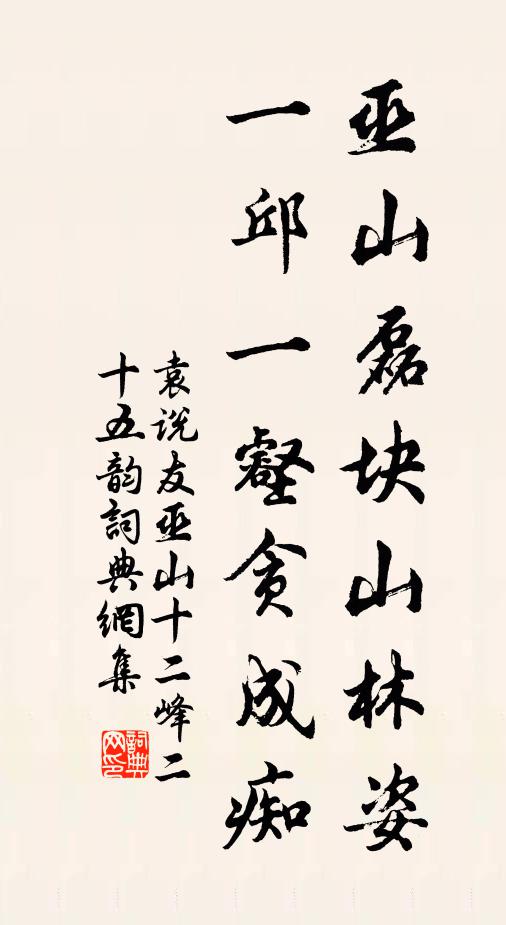 巫山磊块山林姿
一邱一壑貪成痴
袁说友巫山十二峰二
十五韵詞典網集
詞典
网印